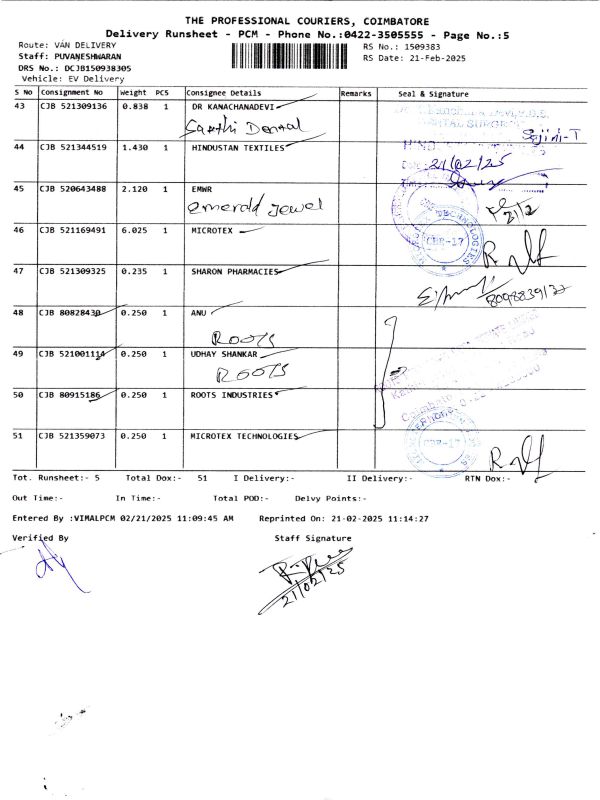 THE PROFESSIONAL COURIERS, COIMBATORE
Delivery Runsheet - PCM - Phone No.:0422-3505555 - Page No.:5
Route: VAN DELIVERY
RS No.: 1509383
Staff: PUVANESHWARAN
RS Date: 21-Feb-2025
DRS No.: DCJB150938305
Vehicle: EV Delivery
S No Consignment No Weight PCS Consignee Details Remarks Seal & Signature
43 CJB 521309136 0.838 1 DR KANACHANADEVI
DENTAL SURGEON
Sakthi Dental
Sajini-T
44 CJB 521344519 1.430 1 HINDUSTAN TEXTILES
Date: 21/02/25
45 CJB 520643488 2.120 1 EMWR
emerald Jewel
21/2
46 CJB 521169491 6.025 1 MICROTEX
TECHNOLOGIES
CBR-17
47 CJB 521309325 0.235 1 SHARON PHARMACIES
48 CJB 80828430 0.250 1 ANU
ROOTS
49 CJB 521001114 0.250 1 UDHAY SHANKAR
ROOTS
50 CJB 80915186 0.250 1 ROOTS INDUSTRIES
Coimbato
51 CJB 521359073 0.250 1 MICROTEX TECHNOLOGIES
CBR-17
Tot. Runsheet:- 5 Total Dox:- 51 I Delivery:- II Delivery:- RTN Dox:-
Out Time:- In Time:- Total POD:- Delvy Points:-
Entered By :VIMALPCM 02/21/2025 11:09:45 AM Reprinted On: 21-02-2025 11:14:27
Verified By Staff Signature
21/02/25